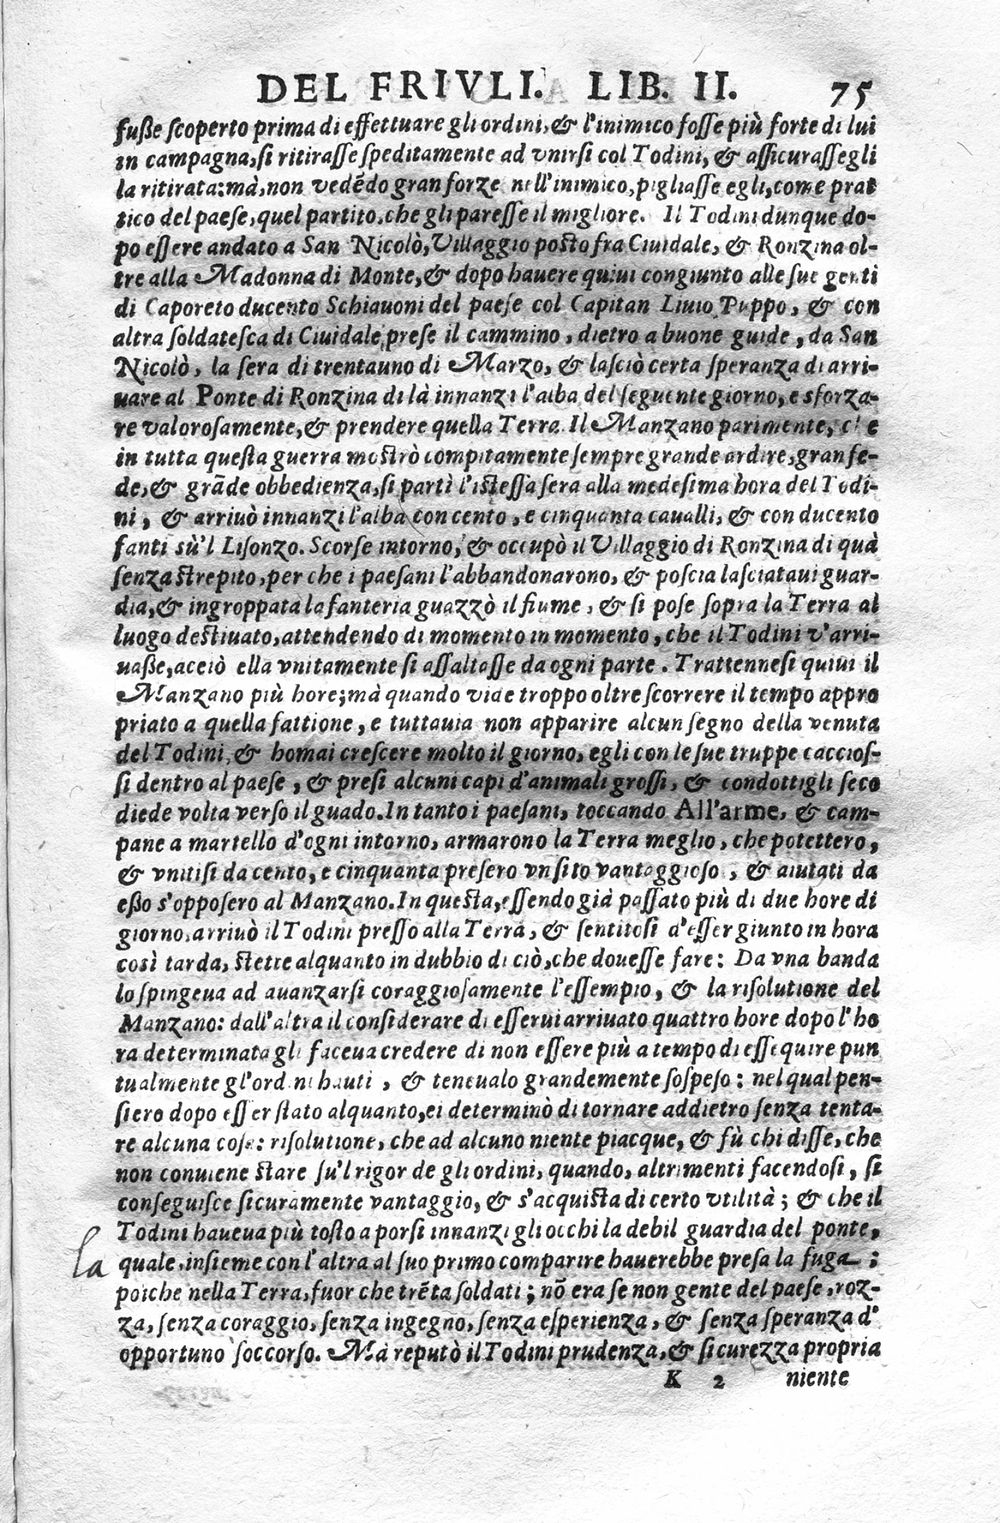 DEL FRIVLI. LIB. II. 75
fuße scoperto prima di effettuare gli ordini, & l'inimico fosse più forte di lui
in campagna, si ritirasse speditamente ad vnirsi col Todini, & assicurassegli
la ritirata: mà, non vedēdo gran forze nell'inimico, pigliasse egli, come prat
tico del paese, quel partito, che gli paresse il migliore. Il Todini dunque do-
po essere andato a San Nicolò, Villaggio posto fra Ciuidale, & Ronzina ol-
tre alla Madonna di Monte, & dopo hauere quiui congiunto alle sue genti
di Caporeto ducento Schiauoni del paese col Capitan Liuio Puppo, & con
altra soldatesca di Ciuidale prese il cammino, dietro a buone guide, da San
Nicolò, la sera di trentauno di Marzo, & lasciò certa speranza di arri-
uare al Ponte di Ronzina di là innanzi l'alba del seguente giorno, e sforza-
re valorosamente, & prendere quella Terra. Il Manzano parimente, che
in tutta questa guerra mostrò compitamente sempre grande ardire, gran fe-
de, & grāde obbedienza, si partì l'istessa sera alla medesima hora del Todi-
ni, & arriuò innanzi l'alba con cento, e cinquanta caualli, & con ducento
fanti sù'l Lisonzo. Scorse intorno, & occupò il Villaggio di Ronzina di quà
senza strepito, per che i paesani l'abbandonarono, & poscia lasciataui guar-
dia, & ingroppata la fanteria guazzò il fiume, & si pose sopra la Terra al
luogo destiuato, attendendo di momento in momento, che il Todini v'arri-
uaße, acciò ella vnitamente si assaltasse da ogni parte. Trattennesi quiui il
Manzano più hore; mà quando vide troppo oltre scorrere il tempo appro
priato a quella fattione, e tuttauia non apparire alcun segno della venuta
del Todini, & homai crescere molto il giorno, egli con le sue truppe caccios-
si dentro al paese, & presi alcuni capi d'animali grossi, & condottigli seco
diede volta verso il guado. In tanto i paesani, toccando All'arme, & cam-
pane a martello d'ogni intorno, armarono la Terra meglio, che potettero,
& vnitisi da cento, e cinquanta presero vn sito vantaggioso, & aiutati da
eßo s'opposero al Manzano. In questa, essendo già passato più di due hore di
giorno, arriuò il Todini presso alla Terra, & sentitosi d'esser giunto in hora
così tarda, stette alquanto in dubbio di ciò, che douesse fare: Da vna banda
lo spingeua ad auanzarsi coraggiosamente l'essempio, & la risolutione del
Manzano: dall'altra il considerare di esserui arriuato quattro hore dopo l'ho
ra determinata gli faceua credere di non essere più a tempo di essequire pun
tualmente gl'ordini hauti, & teneualo grandemente sospeso: nel qual pen-
siero dopo esser stato alquanto, ei determinò di tornare addietro senza tenta-
re alcuna cosa: risolutione, che ad alcuno niente piacque, & fù chi disse, che
non conuiene stare su'l rigor de gli ordini, quando, altrimenti facendosi, si
conseguisce sicuramente vantaggio, & s'acquista di certo vtilità; & che il
Todini haueua più tosto a porsi innanzi gli occhi la debil guardia del ponte,
la quale, insieme con l'altra al suo primo comparire hauerebbe presa la fuga;
poiche nella Terra, fuor che trēta soldati; nō era se non gente del paese, roz-
za, senza coraggio, senza ingegno, senza esperienza, & senza speranza d'
opportuno soccorso. Mà reputò il Todini prudenza, & sicurezza propria
K 2 niente